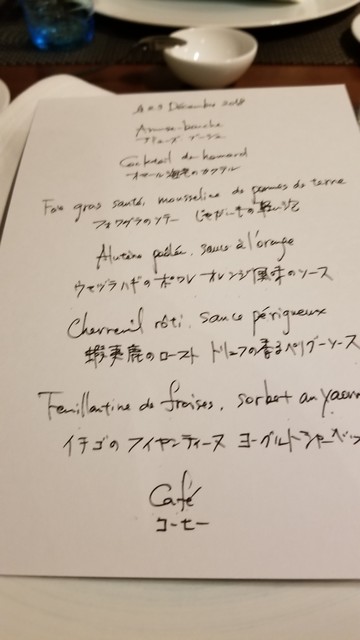 Décembre 2018
Amuse-bouche
アミューズ ブーシュ
Cocktail de homard
オマール海老のカクテル
Foie gras sauté, mousseline de pommes de terre
フォワグラのソテー じゃがいもの軽い
Alutère poêlée, sauce à l'orange
ウマヅラハギのポワレ オレンジ風味のソース
Chevreuil rôti, sauce périgueux
蝦夷鹿のロースト トリュフの香るペリグーソース
Feuillantine de fraises, sorbet au yaour
イチゴのフイヤンティーヌ ヨーグルトシャーベッ
Café
コーヒー